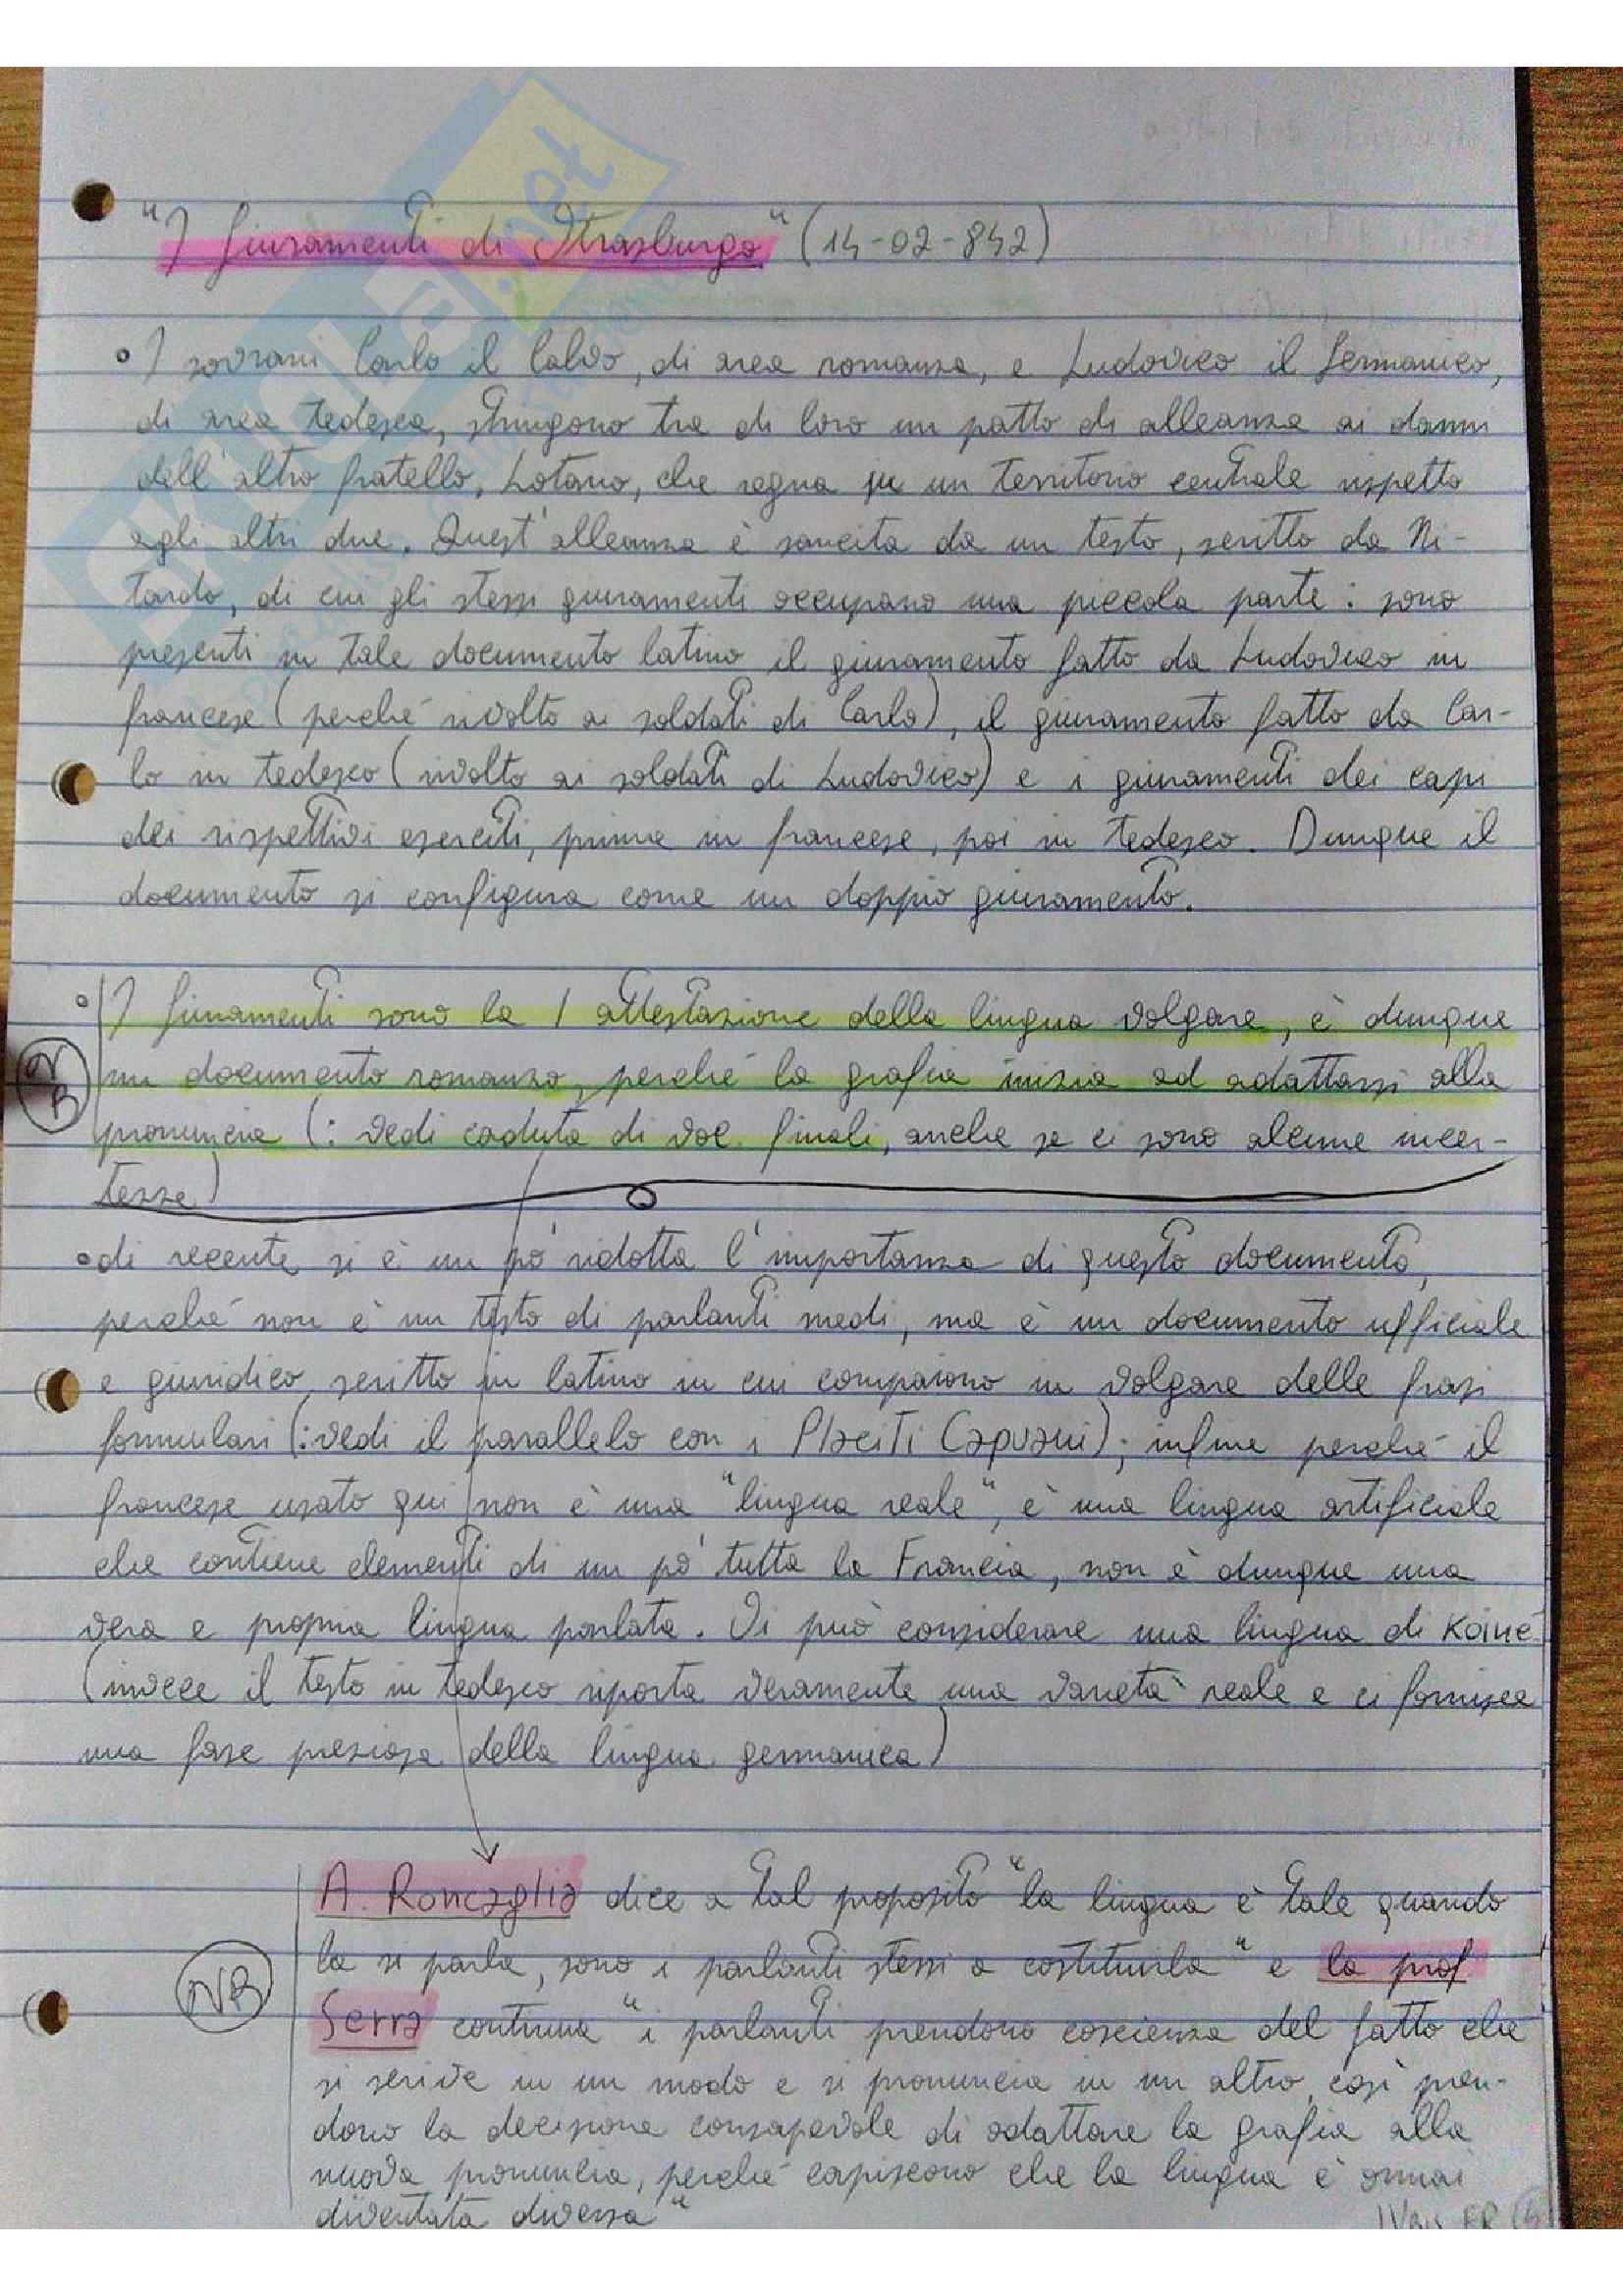 "I Giuramenti di Strasburgo" (14-02-842)
• I sovrani Carlo il Calvo, di area romanza, e Ludovico il Germanico,
di area tedesca, stringono tra di loro un patto di alleanza ai danni
dell'altro fratello, Lotario, che regna su un territorio centrale rispetto
agli altri due. Quest'alleanza è sancita da un testo, scritto da Ni-
tardo, di cui gli stessi giuramenti occupano una piccola parte: sono
presenti in tale documento latino il giuramento fatto da Ludovico in
francese (perché rivolto ai soldati di Carlo), il giuramento fatto da Car-
lo in tedesco (rivolto ai soldati di Ludovico) e i giuramenti dei capi
dei rispettivi eserciti, prima in francese, poi in tedesco. Dunque il
documento si configura come un doppio giuramento.
• I Giuramenti sono la 1 attestazione della lingua volgare, è dunque
NB
un documento romanzo, perché la grafia inizia ad adattarsi alla
pronuncia (: vedi caduta di voc. finali, anche se ci sono alcune incer-
tezze)
• di recente si è un pò ridotta l'importanza di questo documento,
perché non è un testo di parlanti medi, ma è un documento ufficiale
e giuridico, scritto in latino in cui compaiono in volgare delle frasi
formulari (: vedi il parallelo con i Placiti Capuani); infine perché il
francese usato qui non è una "lingua reale", è una lingua artificiale
che contiene elementi di un pò tutta la Francia, non è dunque una
vera e propria lingua parlata. Si può considerare una lingua di koiné
(invece il testo in tedesco riporta veramente una varietà reale e ci fornisce
una fase preziosa della lingua germanica)
A. Roncaglia dice a tal proposito "la lingua è tale quando
la si parla, sono i parlanti stessi a costituirla" e la prof.
NB
Serra continua "i parlanti prendono coscienza del fatto che
si scrive in un modo e si pronuncia in un altro, così pren-
dono la decisione consapevole di adattare la grafia alla
nuova pronuncia, perché capiscono che la lingua è ormai
diventata diversa"